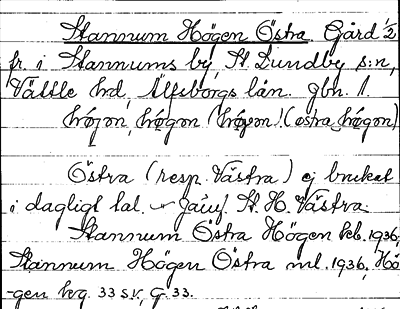 Stannum Högen Östra. Gård ½
fr. i Stannums by, St Lundby s:n,
Vättle hd, Älfsborgs län. gbn. 1.
hǿgon, hǿgọn (hǿgọn) (ọstra hǿgọn)
Östra (resp. Västra) ej brukat
i dagligt tal. – Jämf. St. H. Västra.
Stannum Östra Högen keb. 1936,
Stannum Högen Östra ml. 1936, Hö
-gen hrg. 33 s.v., G 33.